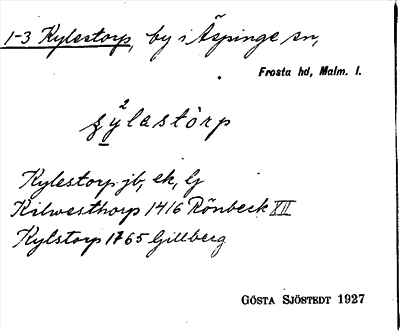 1-3 Kylestorp, by i Äspinge sn,
Frosta hd, Malm. l.
Kylestorp jb, ek, lj
Kilwesthorp 1416 Rönbeck XII
Kylstorp 1765 Gillberg
GÖSTA SJÖSTEDT 1927